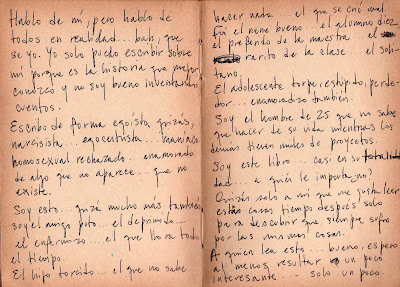 Hablo de mí, pero hablo de
todos en realidad... bah, que
se yo. Yo solo puedo escribir sobre
mí porque es la historia que mejor
conozco y no soy bueno inventando
cuentos.
Escribo de forma egoísta quizas,
narcisista... egocentrista... maníaco
homosexual rechazado... enamorado
de algo que no aparece... que no
existe.
Soy esto... quizá mucho más también
soy el amigo puto... el deprimido...
el enfermizo... el que llora todo
el tiempo.
El hijo torcido... el que no sabe
hacer nada... el que se crió mal.
Fuí el nene bueno... el alumno diez
el preferido de la maestra... el
rarito de la clase... el soli-
tario.
El adolescente torpe, estúpido, perde-
dor... enamoradizo también.
Soy el hombre de 25 que no sabe
que hacer de su vida mientras los
demás tienen miles de proyectos.
Soy este libro... casi en su totalidad
dad... a quién le importa, no?
Quizás solo a mí que me gusta leer
estas cosas tiempo después solo
para descubrir que siempre sufro
por las mismas cosas.
A quien lea esto... bueno, espero
al menos, resultar un poco
interesante... solo un poco.